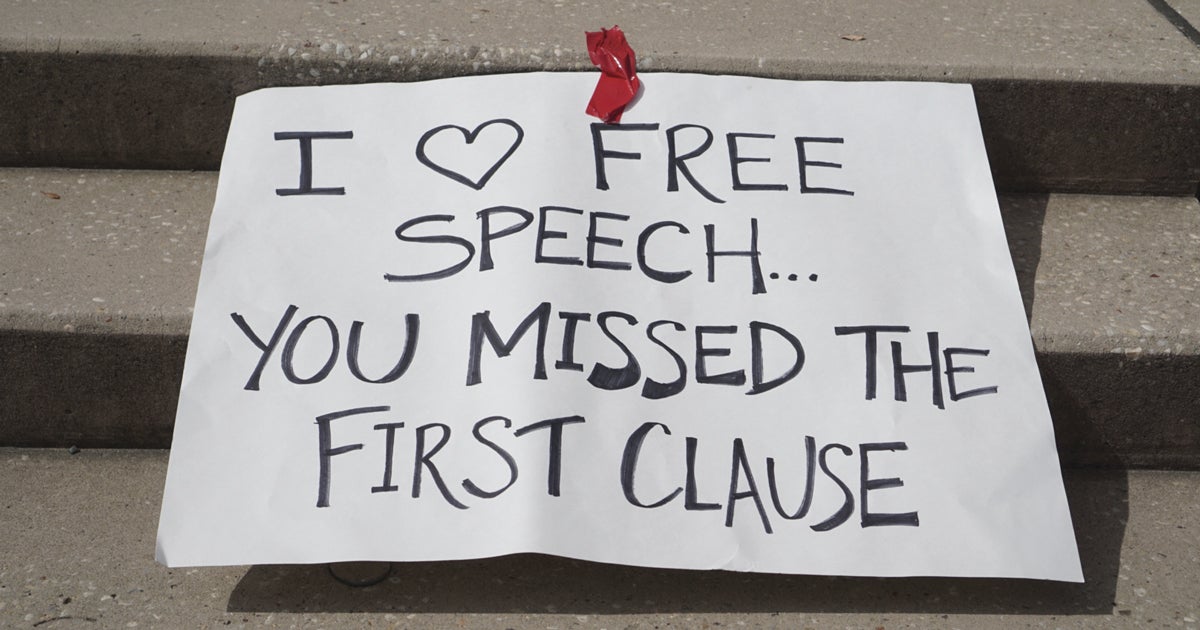 I ♡ FREE
SPEECH...
YOU MISSED THE
FIRST CLAUSE